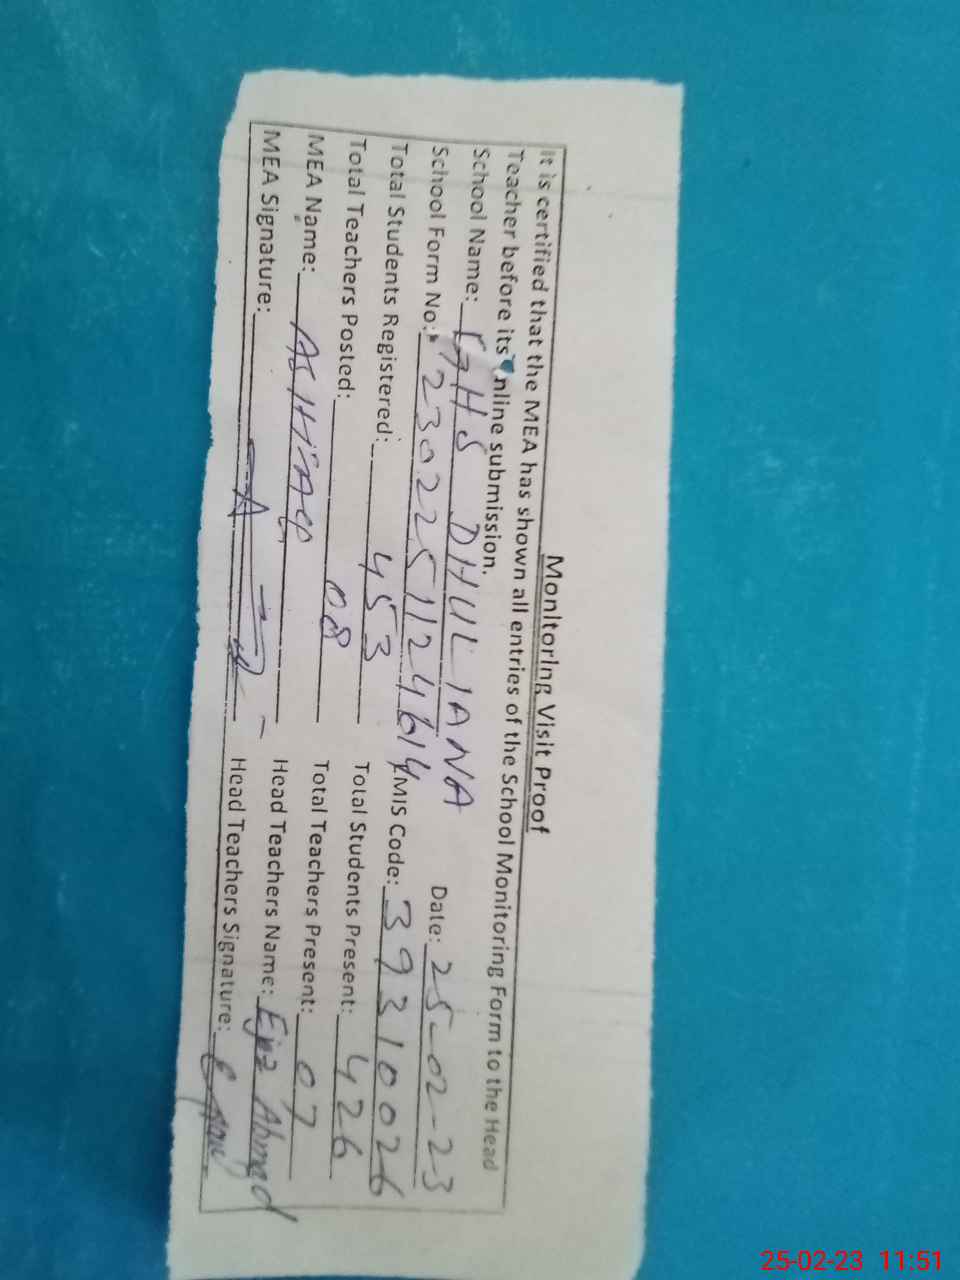 Monitoring Visit Proof
It is certified that the MEA has shown all entries of the School Monitoring Form to the Head
Teacher before its nline submission.
School Name: GHS DHULIANA Date: 25-02-23
School Form No: 2302251124614 EMIS Code: 39310026
Total Students Registered: 453 Total Students Present: 426
Total Teachers Posted: 08 Total Teachers Present: 07
MEA Name: Head Teachers Name: Ejaz Ahmad
MEA Signature: Head Teachers Signature:
25-02-23 11:51